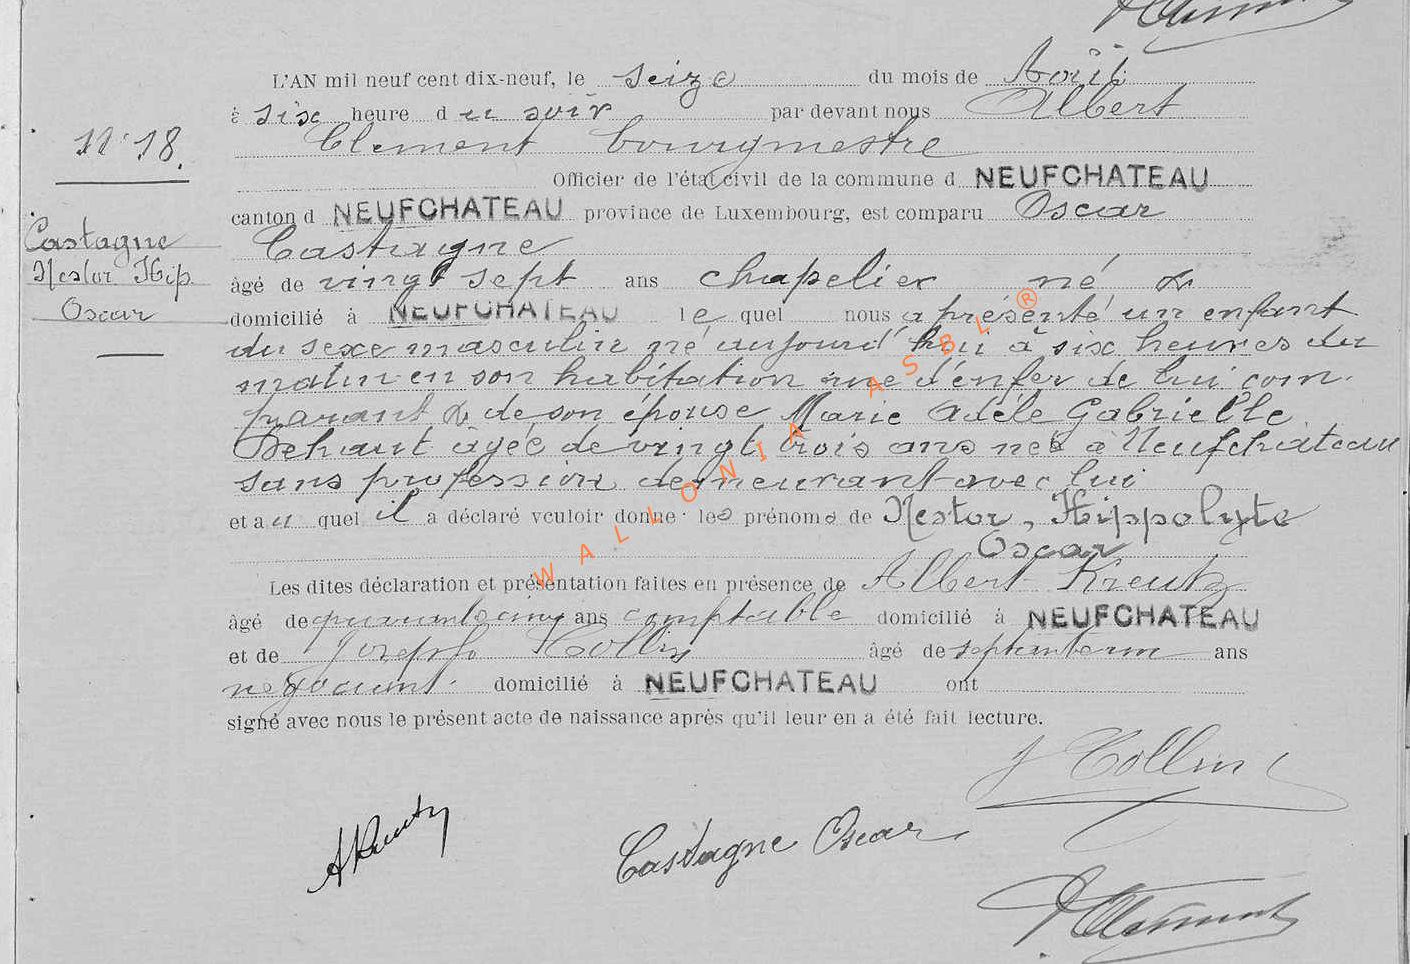 L'AN mil neuf cent dix-neuf, le seize du mois de Août
à six heure du soir par devant nous Albert
Clement bourgmestre
Officier de l'état civil de la commune d NEUFCHATEAU
N° 18.
canton d NEUFCHATEAU province de Luxembourg, est comparu Oscar
Castagne
Castagne
Nestor Hip
Oscar
âgé de vingt sept ans chapelier né &
domicilié à NEUFCHATEAU le quel nous a présenté un enfant
du sexe masculin né aujourd'hui à six heures du
matin en son habitation rue d'enfer de lui com-
parant & de son épouse Marie Adèle Gabrielle
Dehant âgée de vingt trois ans née à Neufchateau
sans profession demeurant avec lui
et au quel il a déclaré vouloir donner les prénoms de Nestor, Hippolyte
Oscar
Les dites déclaration et présentation faites en présence de Albert Kreutz
âgé de quarante cinq ans comptable domicilié à NEUFCHATEAU
et de Joseph Collin âgé de septante un ans
négociant domicilié à NEUFCHATEAU ont
signé avec nous le présent acte de naissance après qu'il leur en a été fait lecture.
J Collin
AKreutz
Castagne Oscar
AClement
WALLONIA ASBL ®